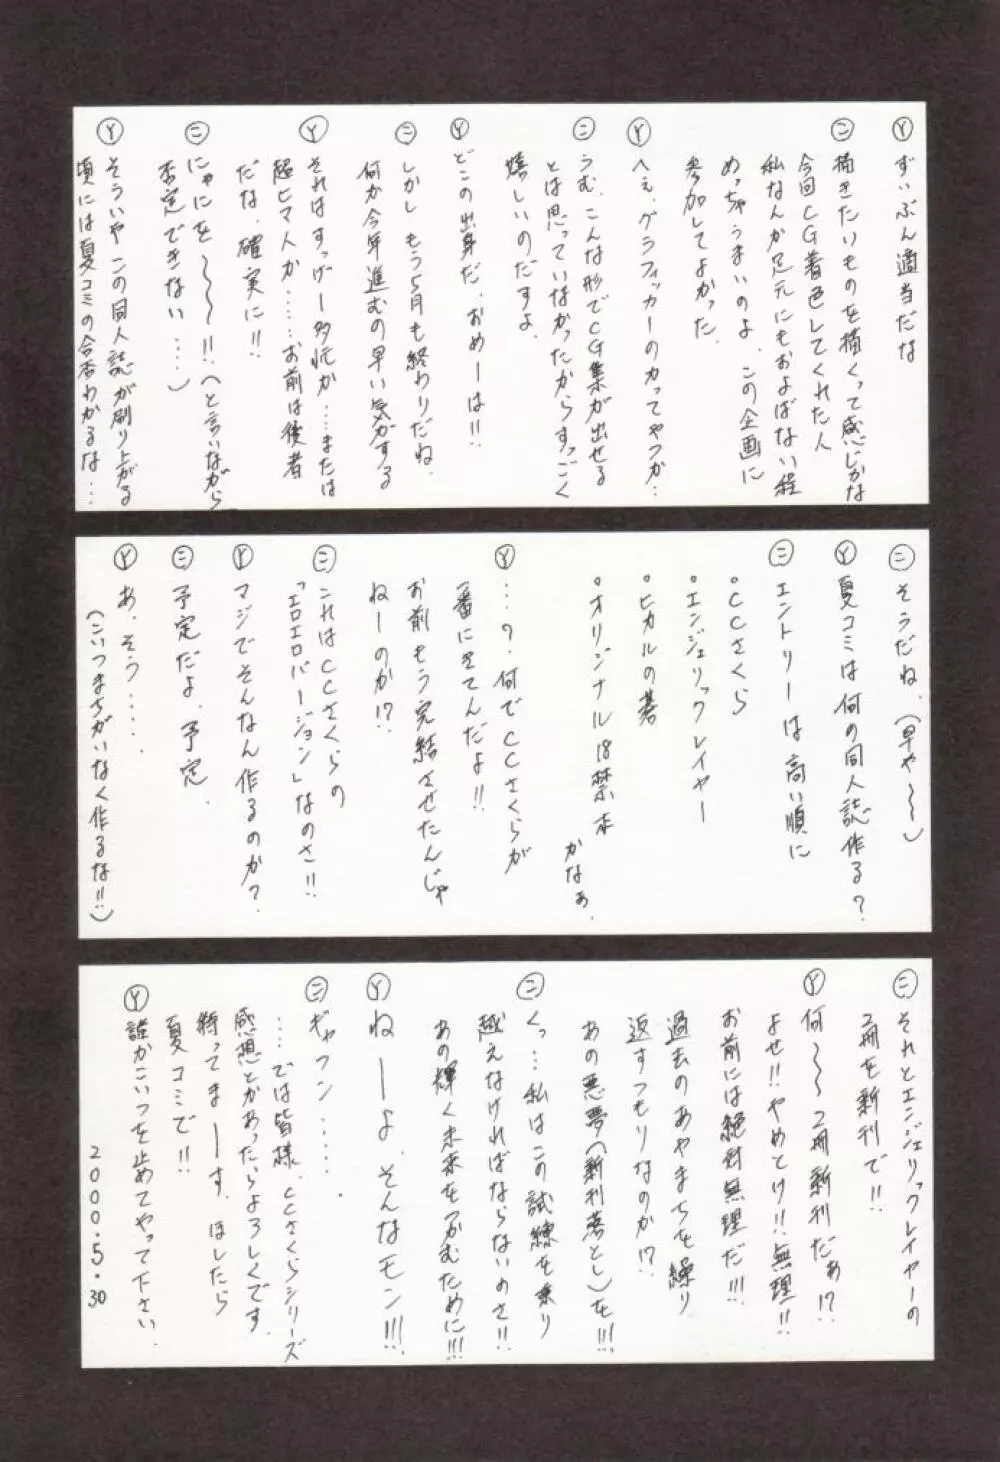 Ⓨ ずいぶん適当だな
㊁ 描きたいものを描くって感じかな
今回CG着色してくれた人
私なんか足元にもおよばない程
めっちゃうまいのよ、この企画に
参加してよかった。
Ⓨ へぇ、グラフィッカーのカってやつか…
㊁ うむ、こんな形でCG集が出せる
とは思っていなかったからすっごく
嬉しいのだすよ。
Ⓨ どこの出身だ、おめーは!!
㊁ しかし もう5月も終わりだね、
何か今年進むの早い気がする
Ⓨ それはすっげー多忙か……または
超ヒマ人か……お前は後者
だな、確実に!!
㊁ にゃにを〜〜〜!!(と言いながら
否定できない……)
Ⓨ そういや この同人誌が刷り上がる
頃には夏コミの合否わかるな…
㊁ そうだね、(早や〜〜)
Ⓨ 夏コミは何の同人誌作る?
㊁ エントリーは高い順に
•CCさくら
•エンジェリックレイヤー
•ヒカルの碁
•オリジナル18禁本
かなぁ、
Ⓨ …?何でCCさくらが
一番にきてんだよ!!
お前もう完結させたんじゃ
ねーのか!?
㊁ これはCCさくらの
「エロエロバージョン」なのさ!!
Ⓨ マジでそんなん作るのか?
㊁ 予定だよ、予定、
Ⓨ あ、そう……、
(こいつまちがいなく作るな!!)
㊁ それとエンジェリックレイヤーの
2冊を新刊で!!
Ⓨ 何〜〜〜2冊新刊だぁ!?
よせ!!やめとけ!!無理!!
お前には絶対無理だ!!!
過去のあやまちを繰り
返すつもりなのか!?
あの悪夢(新刊落とし)を!!!
㊁ くっ…私はこの試練を乗り
越えなければならないのさ!!
あの輝く未来をつかむために!!!
Ⓨ ねーーよ、そんなモン!!!
㊁ ギャフン……、
……では皆様、CCさくらシリーズ
感想とかあったらよろしくです、
待ってまーーす、ほしたら
夏コミで!!
Ⓨ 誰かこいつを止めてやって下さい、
2000.5.30